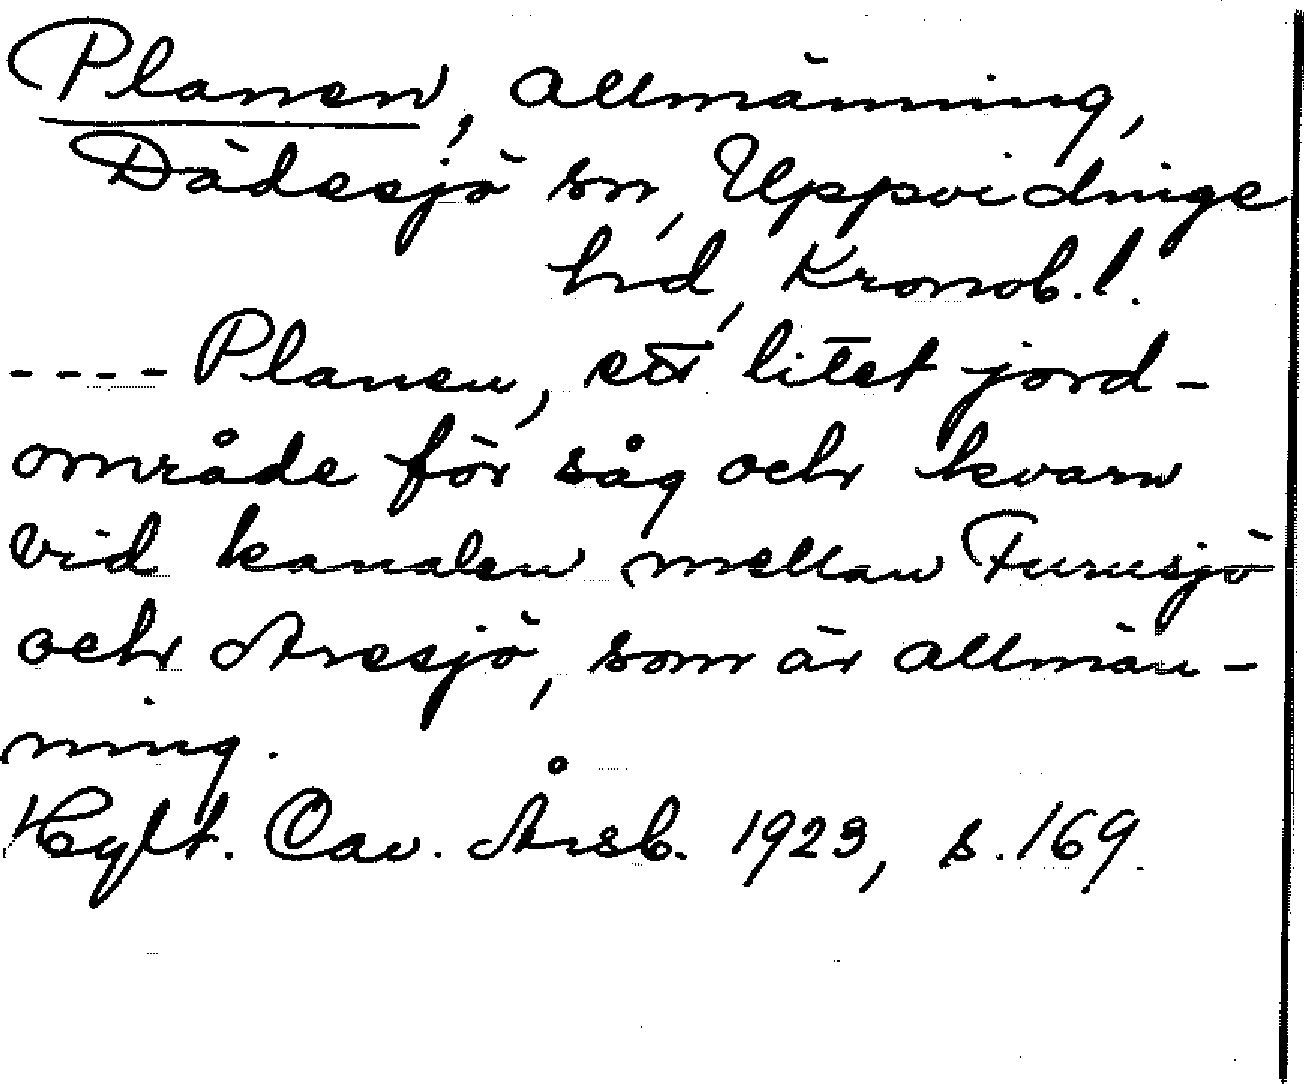 Planen, allmänning,
Dädesjö sn, Uppvidinge
hd, Kronob. l.
---- Planen, ett litet jord-
område för såg och kvarn
vid kanalen mellan Furusjö
och Aresjö, som är allmän-
ning.
Hylt. Cav. Årsb. 1923, s. 169.